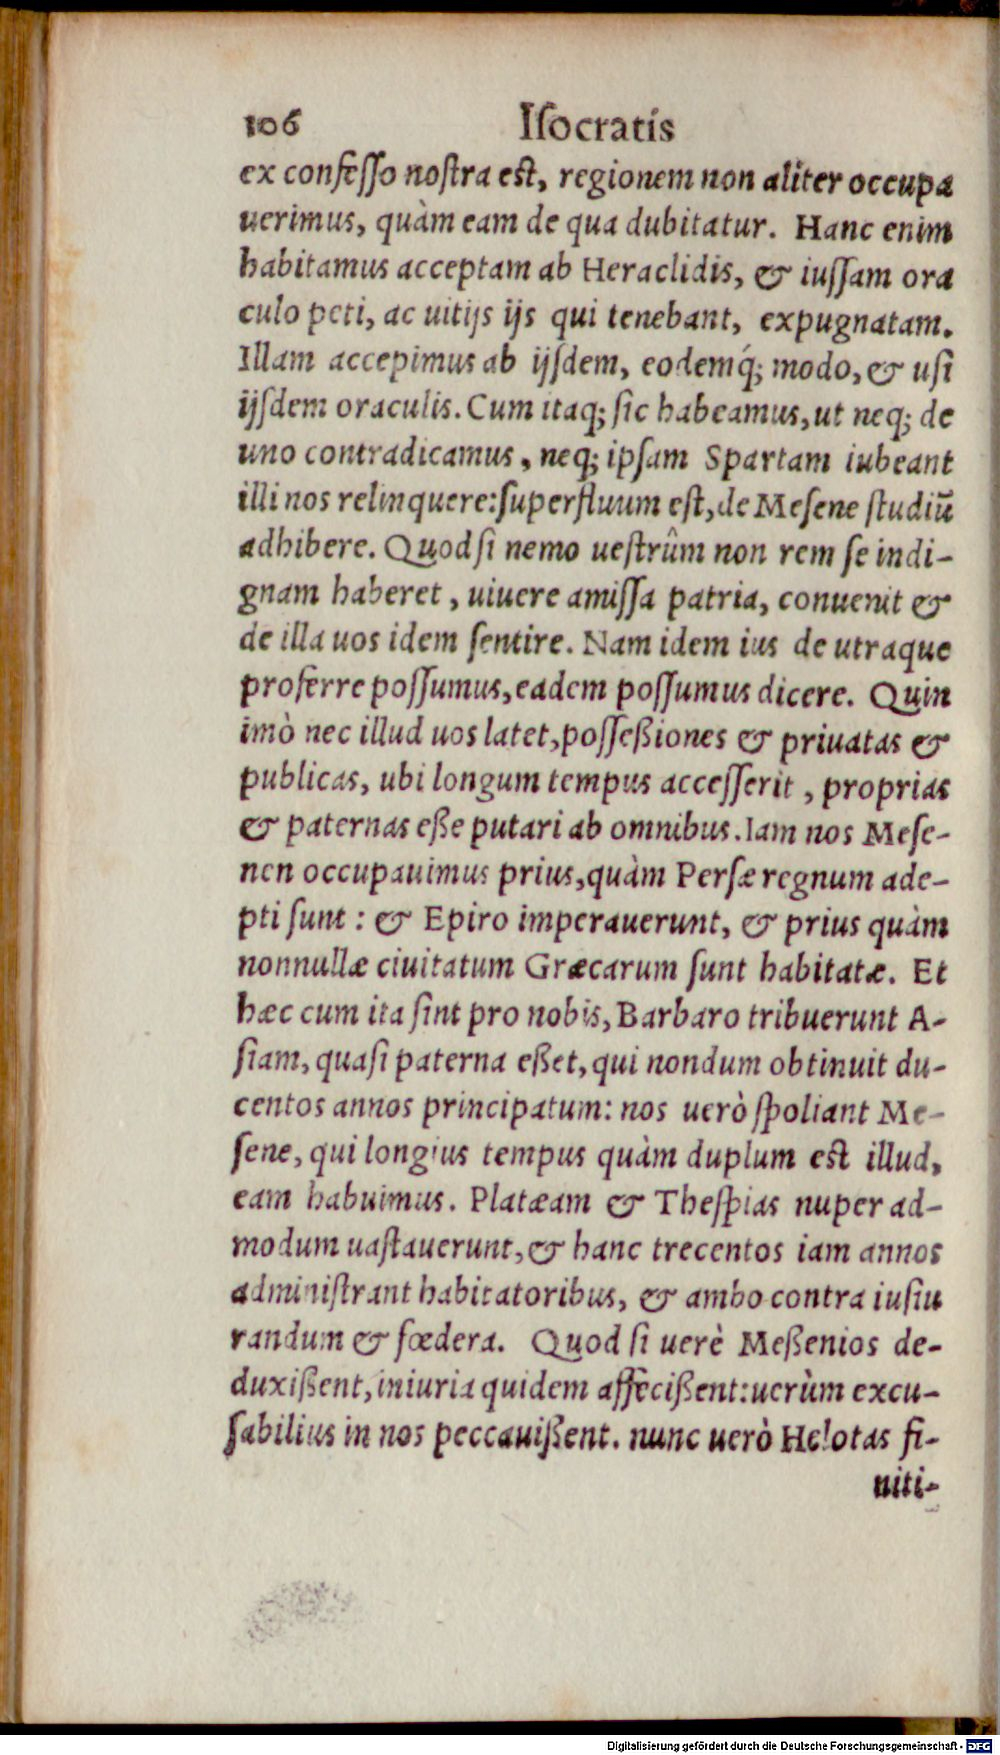 106 Iſocratis
ex confeſſo noſtra eſt, regionem non aliter occupa
uerimus, quàm eam de qua dubitatur. Hanc enim
habitamus acceptam ab Heraclidis, & iuſſam ora
culo peti, ac uitijs ijs qui tenebant, expugnatam.
Illam accepimus ab ijſdem, eodemq́; modo, & uſi
ijſdem oraculis. Cum itaq; ſic habeamus, ut neq; de
uno contradicamus, neq; ipſam Spartam iubeant
illi nos relinquere: ſuperfluum eſt, de Meſene ſtudiū
adhibere. Quod ſi nemo ueſtrûm non rem ſe indi-
gnam haberet, uiuere amiſſa patria, conuenit &
de illa uos idem ſentire. Nam idem ius de utraque
proferre poſſumus, eadem poſſumus dicere. Quin
imò nec illud uos latet, poſſeßiones & priuatas &
publicas, ubi longum tempus acceſſerit, proprias
& paternas eße putari ab omnibus. Iam nos Meſe-
nen occupauimus prius, quàm Perſæ regnum ade-
pti ſunt: & Epiro imperauerunt, & prius quàm
nonnullæ ciuitatum Græcarum ſunt habitatæ. Et
hæc cum ita ſint pro nobis, Barbaro tribuerunt A-
ſiam, quaſi paterna eßet, qui nondum obtinuit du-
centos annos principatum: nos uerò ſpoliant Me-
ſene, qui longius tempus quàm duplum eſt illud,
eam habuimus. Platæam & Theſpias nuper ad-
modum uaſtauerunt, & hanc trecentos iam annos
adminiſtrant habitatoribus, & ambo contra iuſiu
randum & fœdera. Quod ſi uerè Meßenios de-
duxißent, iniuria quidem affecißent: uerùm excu-
ſabilius in nos peccauißent. nunc uerò Helotas fi-
niti-
Digitalisierung gefördert durch die Deutsche Forschungsgemeinschaft - DFG